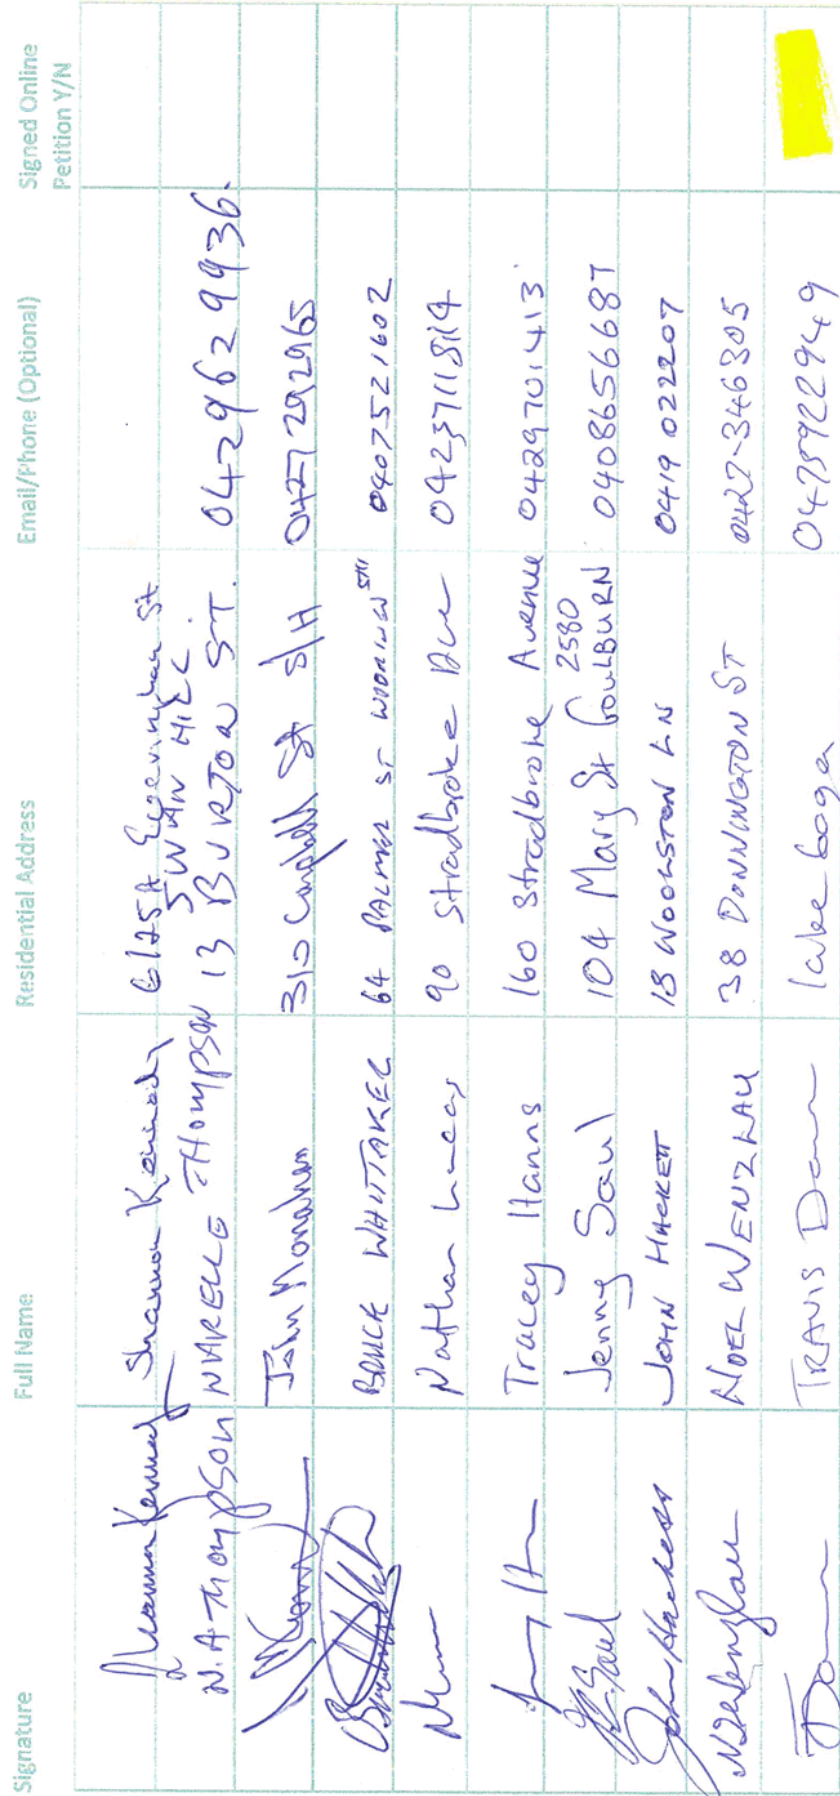 Signature Full Name Residential Address Email/Phone (Optional) Signed Online Petition Y/N
Shannon Kennedy Shannon Kennedy 6/25A St
SWAN HILL
N.A Thompson NARELLE THOMPSON 13 BURTON ST. 0429629936.
John Monahan 310 Campbell St S/H 0427292965
BRUCE WHITTAKER 64 PALMER ST 0407521602
Nathan Lucas 90 Stradbroke Ave
Tracey Hanns 160 Stradbroke Avenue 0429701413
2580
Jenny Saul 104 Mary St GOULBURN 0408656687
John Hackett JOHN HACKETT 18 LN 0419 022207
NOEL WENZLAU 38 DONNINGTON ST 0427-346305
TRAVIS lake boga 0475922949